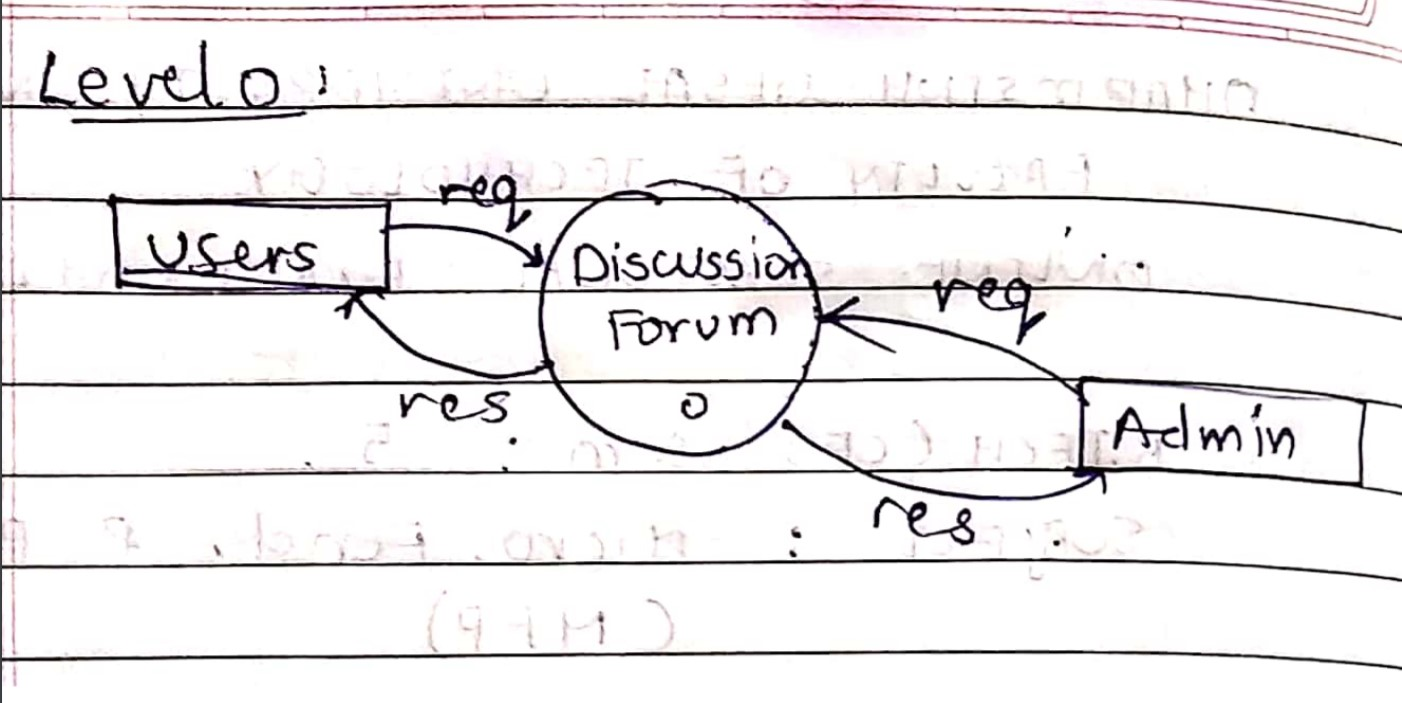 Level 0:
req
Users
Discussion
Forum
req
res
0
Admin
res